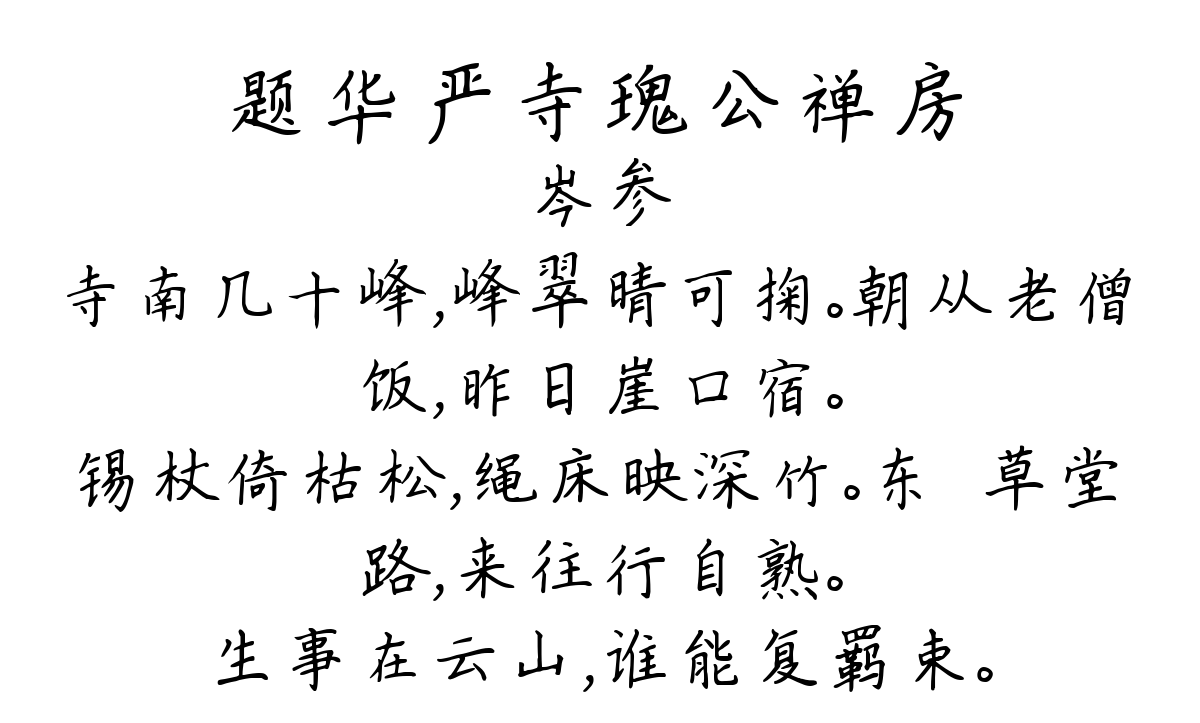 题华严寺瑰公禅房
岑参
寺南几十峰,峰翠晴可掬。朝从老僧
饭,昨日崖口宿。
锡杖倚枯松,绳床映深竹。东 草堂
路,来往行自熟。
生事在云山,谁能复羁束。